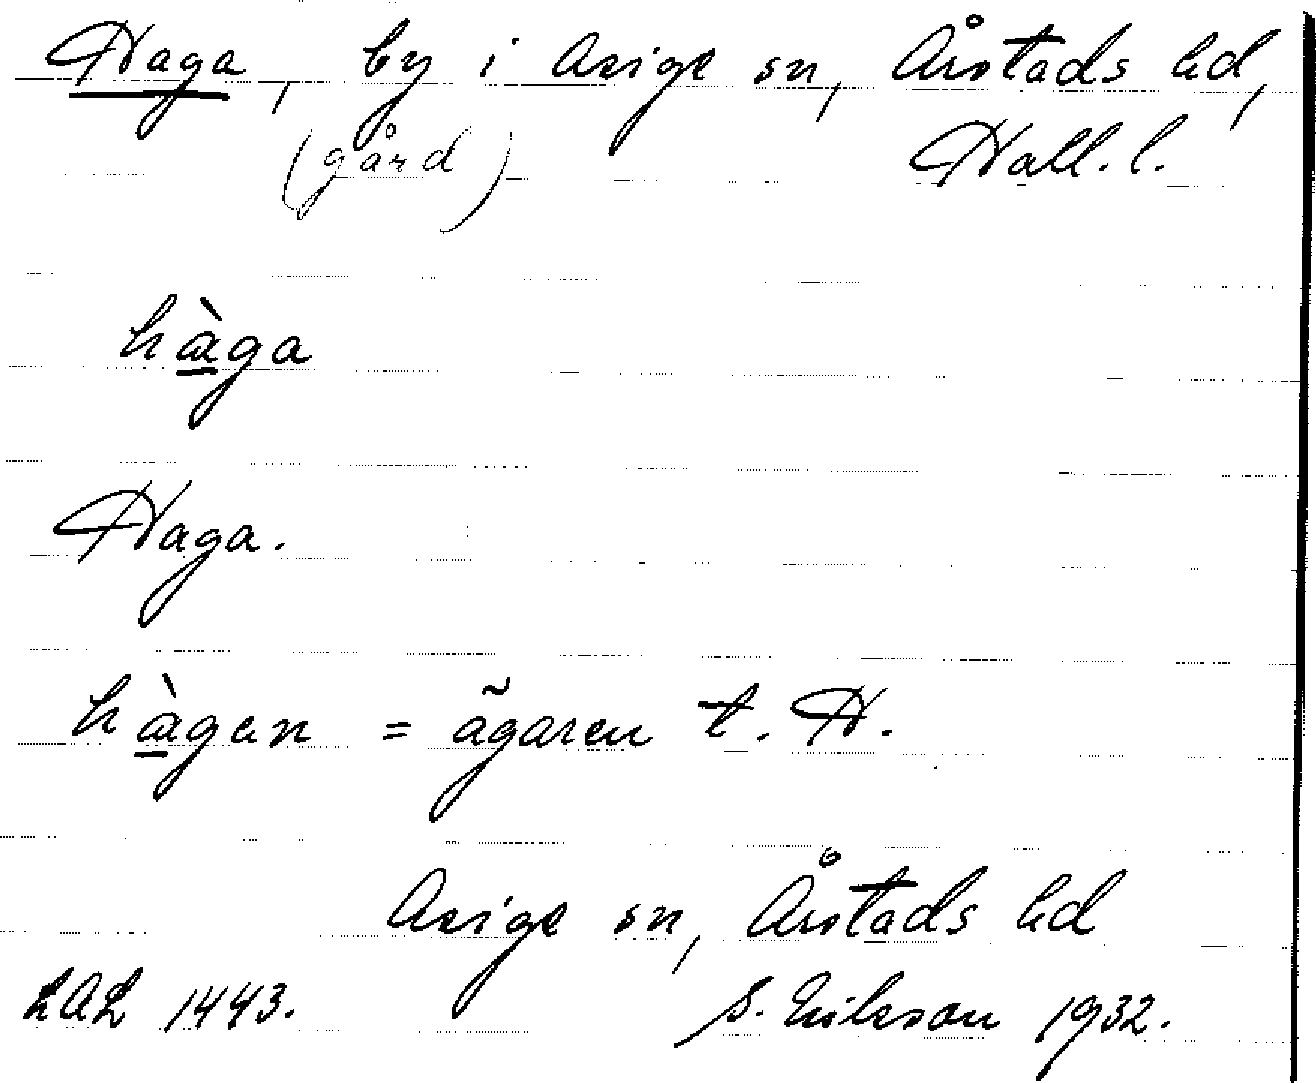 Haga, by i Asige sn, Årstads hd,
(gård) Hall. l.
hàga
Haga.
hàgen = ägaren t. H.
Asige sn, Årstads hd
LAL 1443. S. Eriksson 1932.